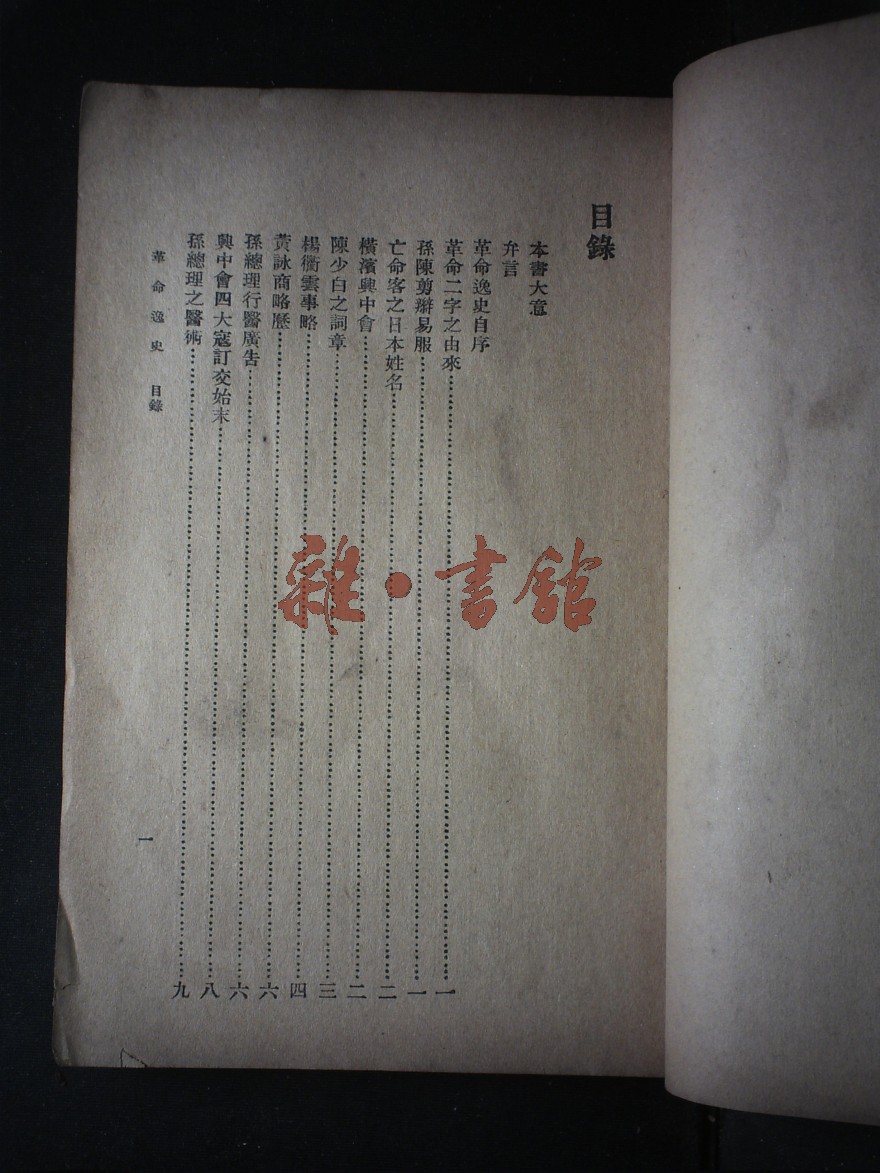 目錄
本書大意
弁言
革命逸史自序
革命二字之由來……一
孫陳剪辮易服……一
亡命客之日本姓名……二
橫濱興中會……二
陳少白之詞章……三
楊衢雲事略……四
黃詠商略歷……六
孫總理行醫廣告……六
興中會四大寇訂交始末……八
孫總理之醫術……九
革命逸史 目錄
一
雜·書館